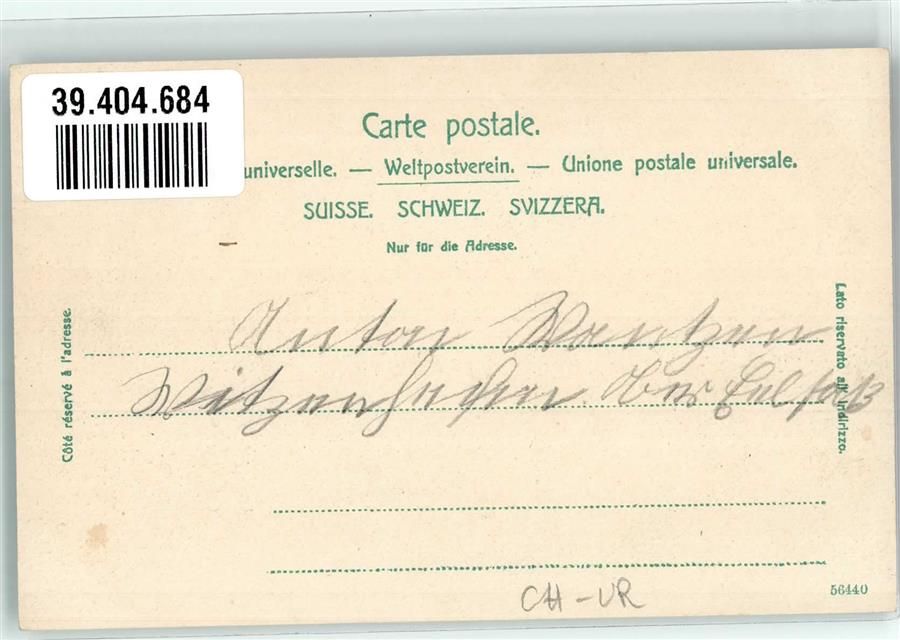 39.404.684
Carte postale.
universelle. — Weltpostverein. — Unione postale universale.
SUISSE. SCHWEIZ. SVIZZERA.
Nur für die Adresse.
Côté réservé à l'adresse.
Lato riservato all'indirizzo.
Anton
Ober
CH-UR
56440